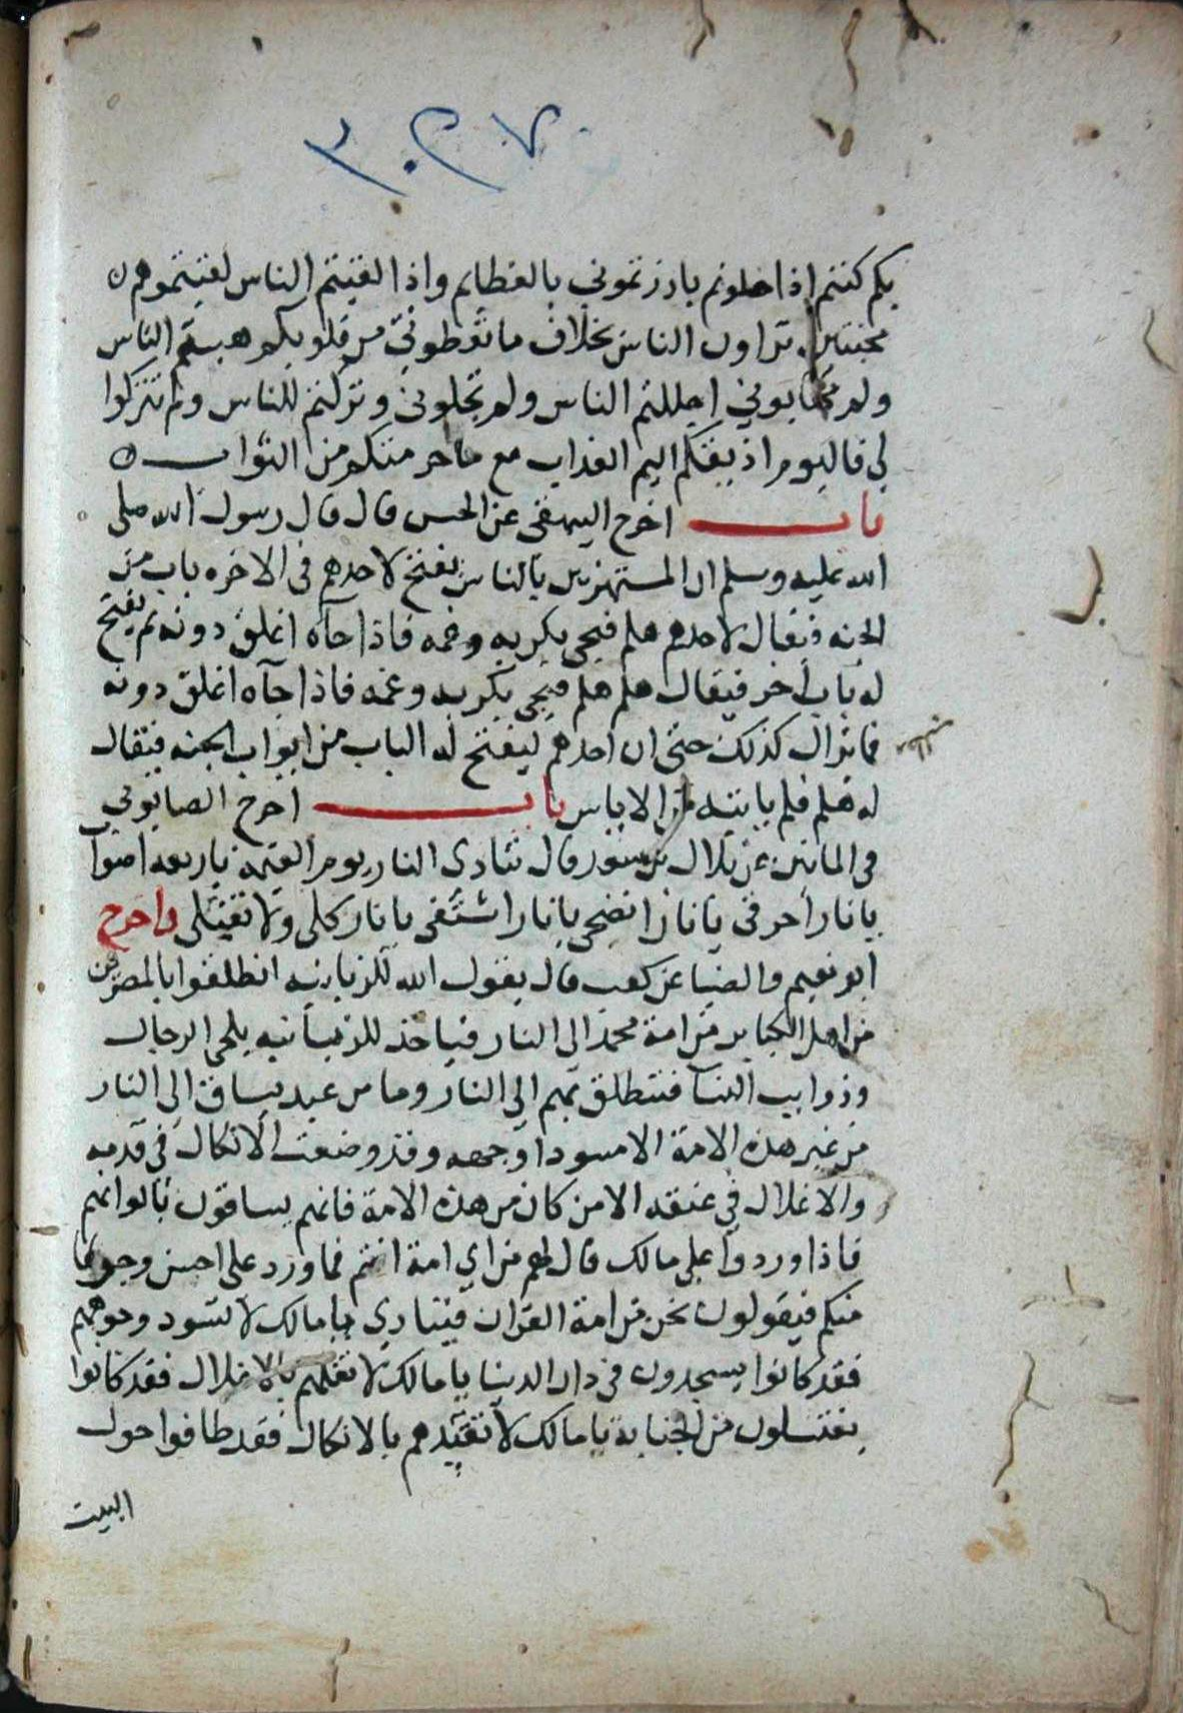 ٣٠٢٧
بكم كنتم اذا خلوتم بارزتموني بالعظايم واذا لقيتم الناس لقيتموهم
مخبتين تراون الناس بخلاف ما تعطوني من قلوبكم هبتم الناس
ولم تهابوني اجللتم الناس ولم تجلوني وتركتم للناس ولم تتركوا
لي فاليوم اذيقكم اليم العذاب مع ما حرمتكم من الثواب
باب اخرج البيهقى عن الحسن قال قال رسول الله صلى
الله عليه وسلم ان المستهزين بالناس يفتح لاحدهم فى الاخره باب من
الجنه فيقال لاحدهم هلم فيجى بكربه وغمه فاذا جآه اغلق دونه ثم يفتح
له باب آخر فيقال هلم هلم فيجى بكربه وغمه فاذا جآه اغلق دونه
فما يزال كذلك حتى ان احدهم ليفتح له الباب من ابواب الجنه فيقال
له هلم فلم ياتيه من الاياس باب اخرج الصابوني
فى الماتين عن بلال بن سعد قال تنادى النار يوم القيمة باربعه اصوات
يا نار احرقى يا نار انضجى يا نار اشتفى يا نار كلى ولا تقتلى واخرج
ابو نعيم والضيا عن كعب قال يقول الله للزبانيه انطلقوا بالمصرين
من اهل الكباير من امة محمد الى النار فياخذ الزبانيه بلحى الرجال
وذوايب النسا فتنطلق بهم الي النار وما من عبد يساق الى النار
من غير هذه الامة الا مسودا وجهه وقد وضعت الانكال في قدميه
والاغلال في عنقه الا من كان من هذه الامة فانهم يساقون بالوانهم
فاذا وردوا على مالك قال لهم من اي امة انتم فما ورد على احسن وجوها
منكم فيقولون نحن من امة القران فينادي يا مالك لا تسود وجوههم
فقد كانوا يسجدون فى دار الدنيا يا مالك لا تغلهم بالاغلال فقد كانوا
يغتسلون من الجنابة يا مالك لا تقيدهم بالانكال فقد طافوا حول
البيت